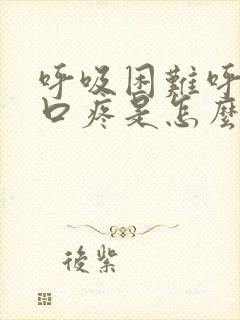 呼吸困難呼
口疼是怎麼
後紫